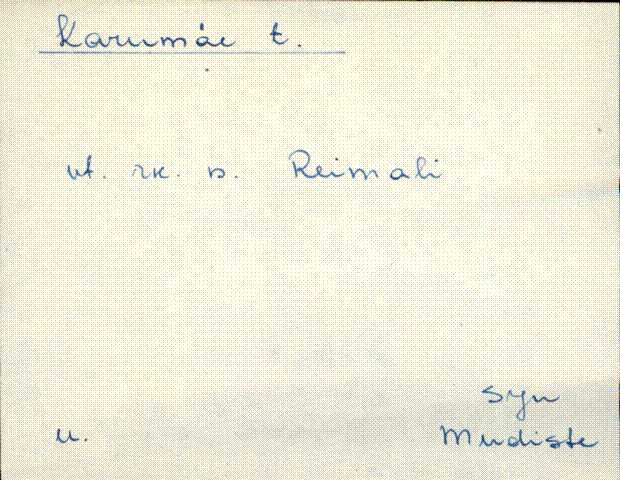 Karumäe t.
vt. rk. s. Reimali
SJn
u. Mudiste